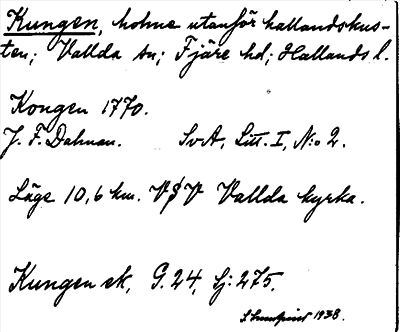 Kungen, holme utanför hallandskus-
ten; Vallda sn; Fjäre hd; Hallands l.
Kongen 1770.
J. F. Dahman. SvA, Litt. I, N:o 2.
Läge 10,6 km. VSV Vallda kyrka.
Kungen ek, G. 24, Sj: 275.
1938.